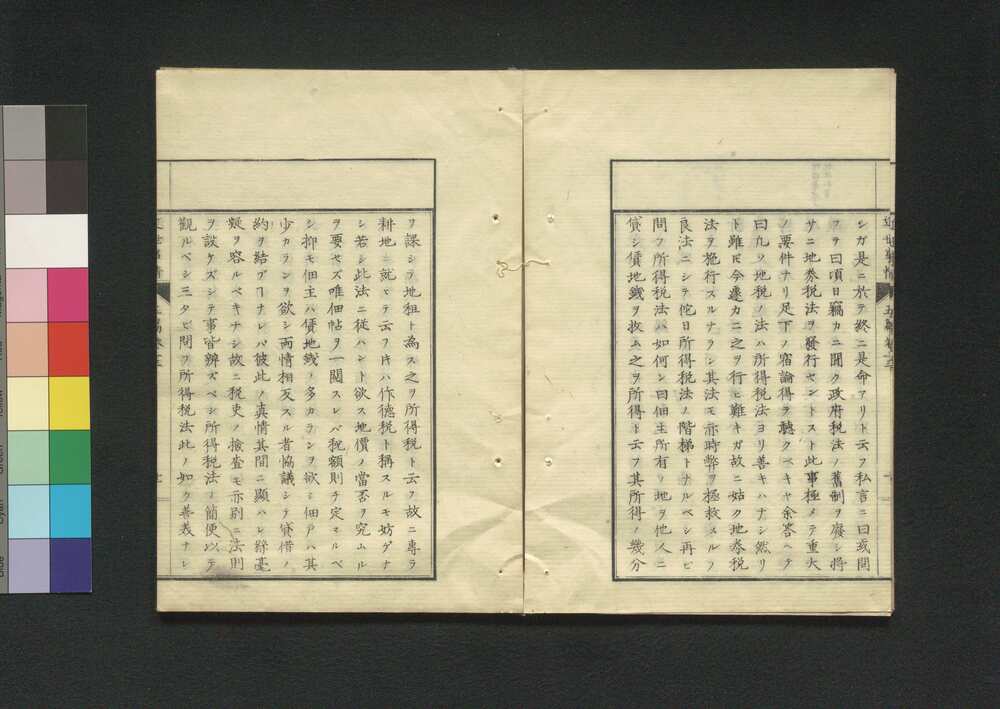 シガ是ニ於テ終ニ是命アリト云フ私言ニ曰或問
フヲ曰頃日竊カニ聞ク政府税法ノ舊制ヲ廢シ將
サニ地券税法ヲ發行セントスト此事極メテ重大
ノ要件ナリ足下ノ宿論得ヲ聽クベキヤ余答ヘテ
曰凡ソ地税ノ法ハ所得税法ヨリ善キハナシ然リ
ト雖𪜈今遽カニ之ヲ行ヒ難キガ故ニ姑ク地券税
法ヲ施行スルナラン其法モ亦時弊ヲ極救スルノ
良法ニシテ佗日所得税法ノ階梯トナルベシ再ビ
問フ所得税法ハ如何ン曰佃主所有ノ地ヲ他人ニ
貸シ債地錢ヲ收ム之ヲ所得ト云フ其所得ノ幾分
ヲ課シテ地租ト為ス之ヲ所得税ト云フ故ニ專ラ
耕地ニ就ヒテ云フ𪜈ハ作德税ト稱スルモ妨ゲナ
シ若シ此法ニ從ハント欲ス地價ノ當否ヲ究ムル
ヲ要セズ唯佃帖ヲ一閲スレバ税額則チ定マルベ
シ抑モ佃主ハ債地錢ノ多カランヲ欲シ佃戸ハ其
少カランヲ欲シ両情相反スル者協議シテ貸借ノ
約ヲ結ブヿナレバ彼此ノ真情其間ニ顯ハレ絲毫
疑ヲ容ルベキナシ故ニ税吏ノ撿査モ亦別ニ法則
ヲ設ケズシテ事皆辨ズベシ所得税法ノ簡便以テ
觀ルベシ三タビ問フ所得税法此ノ如ク善美ナレ